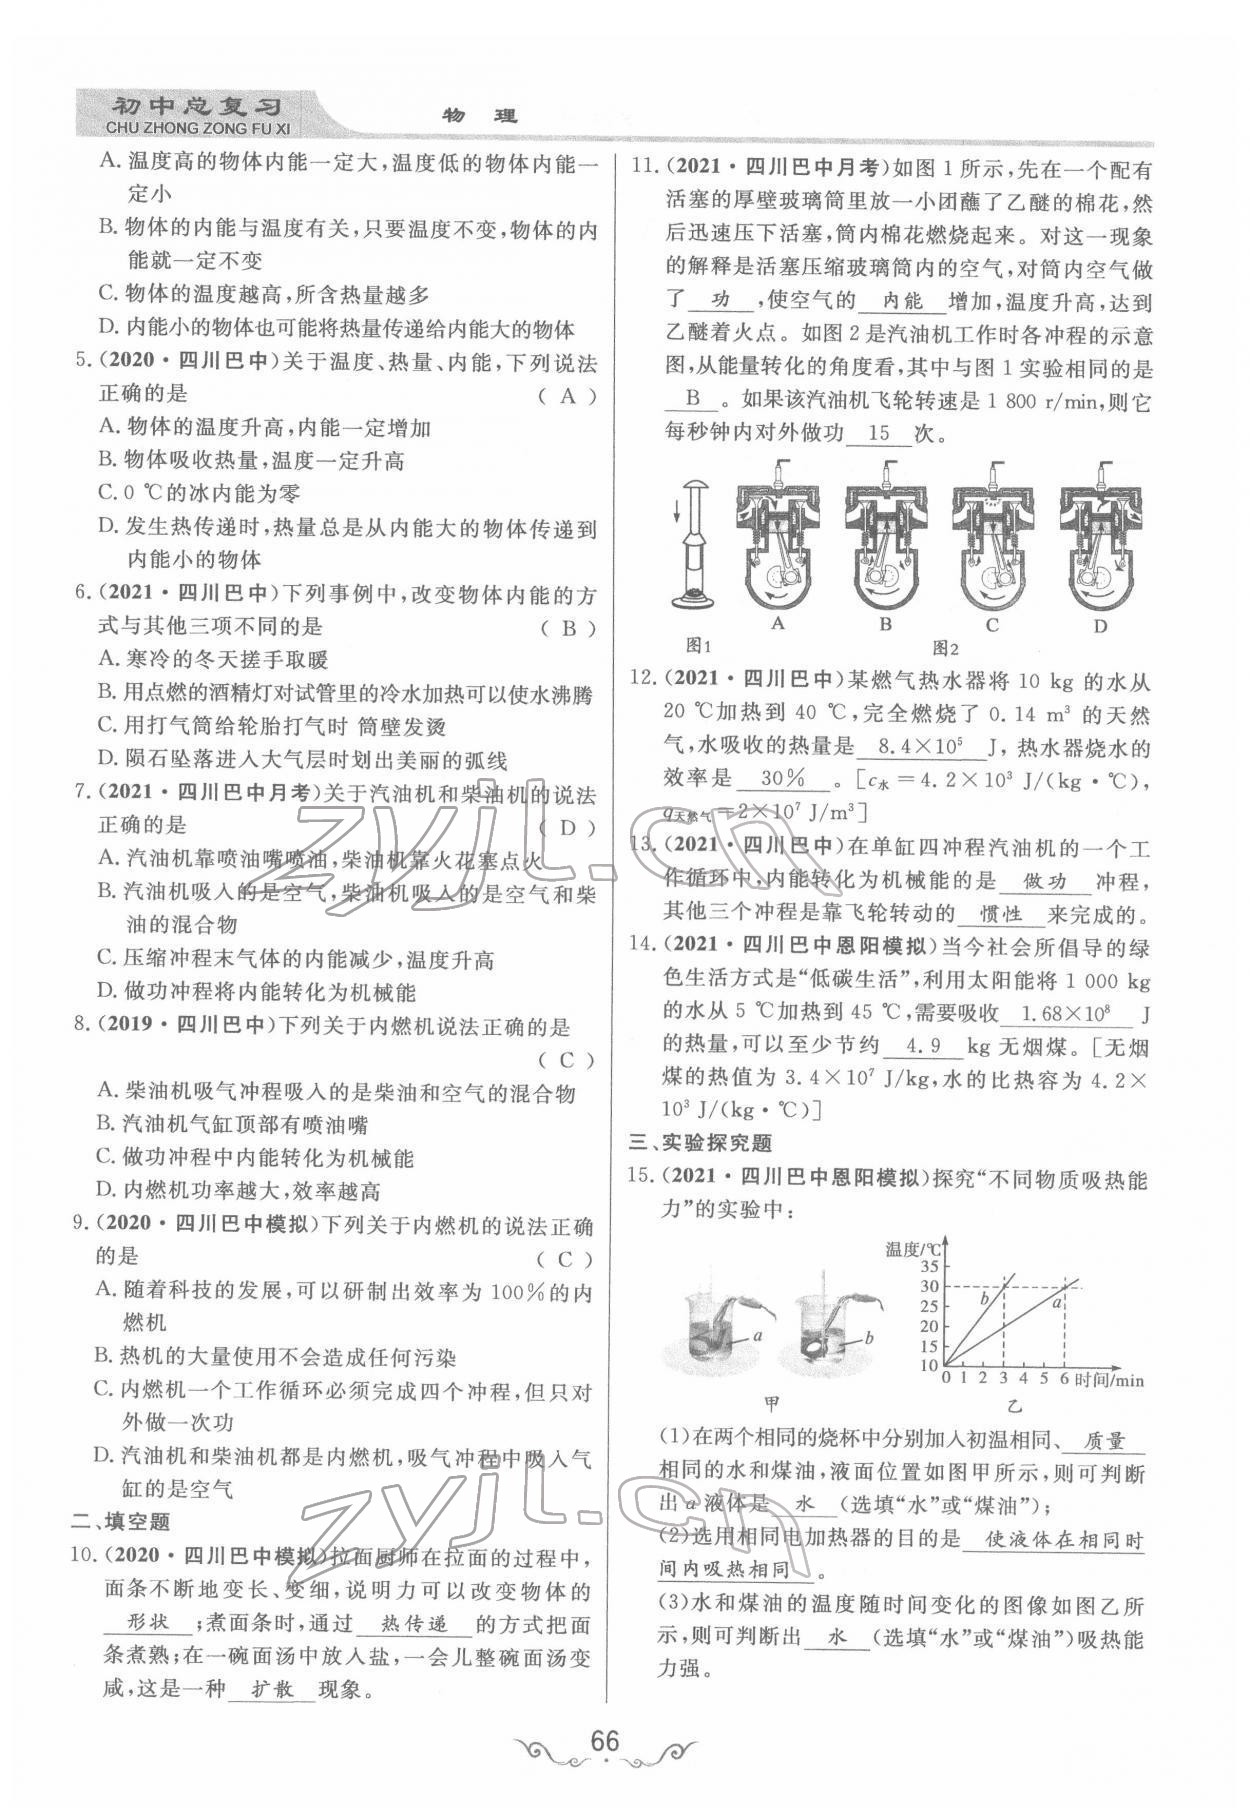 初中总复习
CHU ZHONG ZONG FU XI
物 理
A. 温度高的物体内能一定大,温度低的物体内能一
定小
B. 物体的内能与温度有关,只要温度不变,物体的内
能就一定不变
C. 物体的温度越高,所含热量越多
D. 内能小的物体也可能将热量传递给内能大的物体
5. (2020·四川巴中)关于温度、热量、内能,下列说法
正确的是 ( A )
A. 物体的温度升高,内能一定增加
B. 物体吸收热量,温度一定升高
C. 0 ℃的冰内能为零
D. 发生热传递时,热量总是从内能大的物体传递到
内能小的物体
6. (2021·四川巴中)下列事例中,改变物体内能的方
式与其他三项不同的是 ( B )
A. 寒冷的冬天搓手取暖
B. 用点燃的酒精灯对试管里的冷水加热可以使水沸腾
C. 用打气筒给轮胎打气时 筒壁发烫
D. 陨石坠落进入大气层时划出美丽的弧线
7. (2021·四川巴中月考)关于汽油机和柴油机的说法
正确的是 ( D )
A. 汽油机靠喷油嘴喷油,柴油机靠火花塞点火
B. 汽油机吸入的是空气,柴油机吸入的是空气和柴
油的混合物
C. 压缩冲程末气体的内能减少,温度升高
D. 做功冲程将内能转化为机械能
8. (2019·四川巴中)下列关于内燃机说法正确的是
( C )
A. 柴油机吸气冲程吸入的是柴油和空气的混合物
B. 汽油机气缸顶部有喷油嘴
C. 做功冲程中内能转化为机械能
D. 内燃机功率越大,效率越高
9. (2020·四川巴中模拟)下列关于内燃机的说法正确
的是 ( C )
A. 随着科技的发展,可以研制出效率为100%的内
燃机
B. 热机的大量使用不会造成任何污染
C. 内燃机一个工作循环必须完成四个冲程,但只对
外做一次功
D. 汽油机和柴油机都是内燃机,吸气冲程中吸入气
缸的是空气
二、填空题
10. (2020·四川巴中模拟)拉面厨师在拉面的过程中,
面条不断地变长、变细,说明力可以改变物体的
形状 ;煮面条时,通过 热传递 的方式把面
条煮熟;在一碗面汤中放入盐,一会儿整碗面汤变
咸,这是一种 扩散 现象。
11. (2021·四川巴中月考)如图1所示,先在一个配有
活塞的厚壁玻璃筒里放一小团蘸了乙醚的棉花,然
后迅速压下活塞,筒内棉花燃烧起来。对这一现象
的解释是活塞压缩玻璃筒内的空气,对筒内空气做
了 功 ,使空气的 内能 增加,温度升高,达到
乙醚着火点。如图2是汽油机工作时各冲程的示意
图,从能量转化的角度看,其中与图1实验相同的是
B 。如果该汽油机飞轮转速是1 800 r/min,则它
每秒钟内对外做功 15 次。
A B C D
图1 图2
12. (2021·四川巴中)某燃气热水器将10 kg的水从
20 ℃加热到40 ℃,完全燃烧了0.14 m³的天然
气,水吸收的热量是 8.4×10⁵ J,热水器烧水的
效率是 30% 。[c水=4.2×10³ J/(kg·℃),
q天然气=2×10⁷ J/m³]
13. (2021·四川巴中)在单缸四冲程汽油机的一个工
作循环中,内能转化为机械能的是 做功 冲程,
其他三个冲程是靠飞轮转动的 惯性 来完成的。
14. (2021·四川巴中恩阳模拟)当今社会所倡导的绿
色生活方式是“低碳生活”,利用太阳能将1 000 kg
的水从5 ℃加热到45 ℃,需要吸收 1.68×10⁸ J
的热量,可以至少节约 4.9 kg无烟煤。[无烟
煤的热值为3.4×10⁷ J/kg,水的比热容为4.2×
10³ J/(kg·℃)]
三、实验探究题
15. (2021·四川巴中恩阳模拟)探究“不同物质吸热能
力”的实验中:
a b
甲
温度/℃
35
30
25
20
15
10
b a
0 1 2 3 4 5 6 时间/min
乙
(1)在两个相同的烧杯中分别加入初温相同、 质量
相同的水和煤油,液面位置如图甲所示,则可判断
出a液体是 水 (选填“水”或“煤油”);
(2)选用相同电加热器的目的是 使液体在相同时
间内吸热相同 。
(3)水和煤油的温度随时间变化的图像如图乙所
示,则可判断出 水 (选填“水”或“煤油”)吸热能
力强。
66
zyjl.cn
zyjl.cn